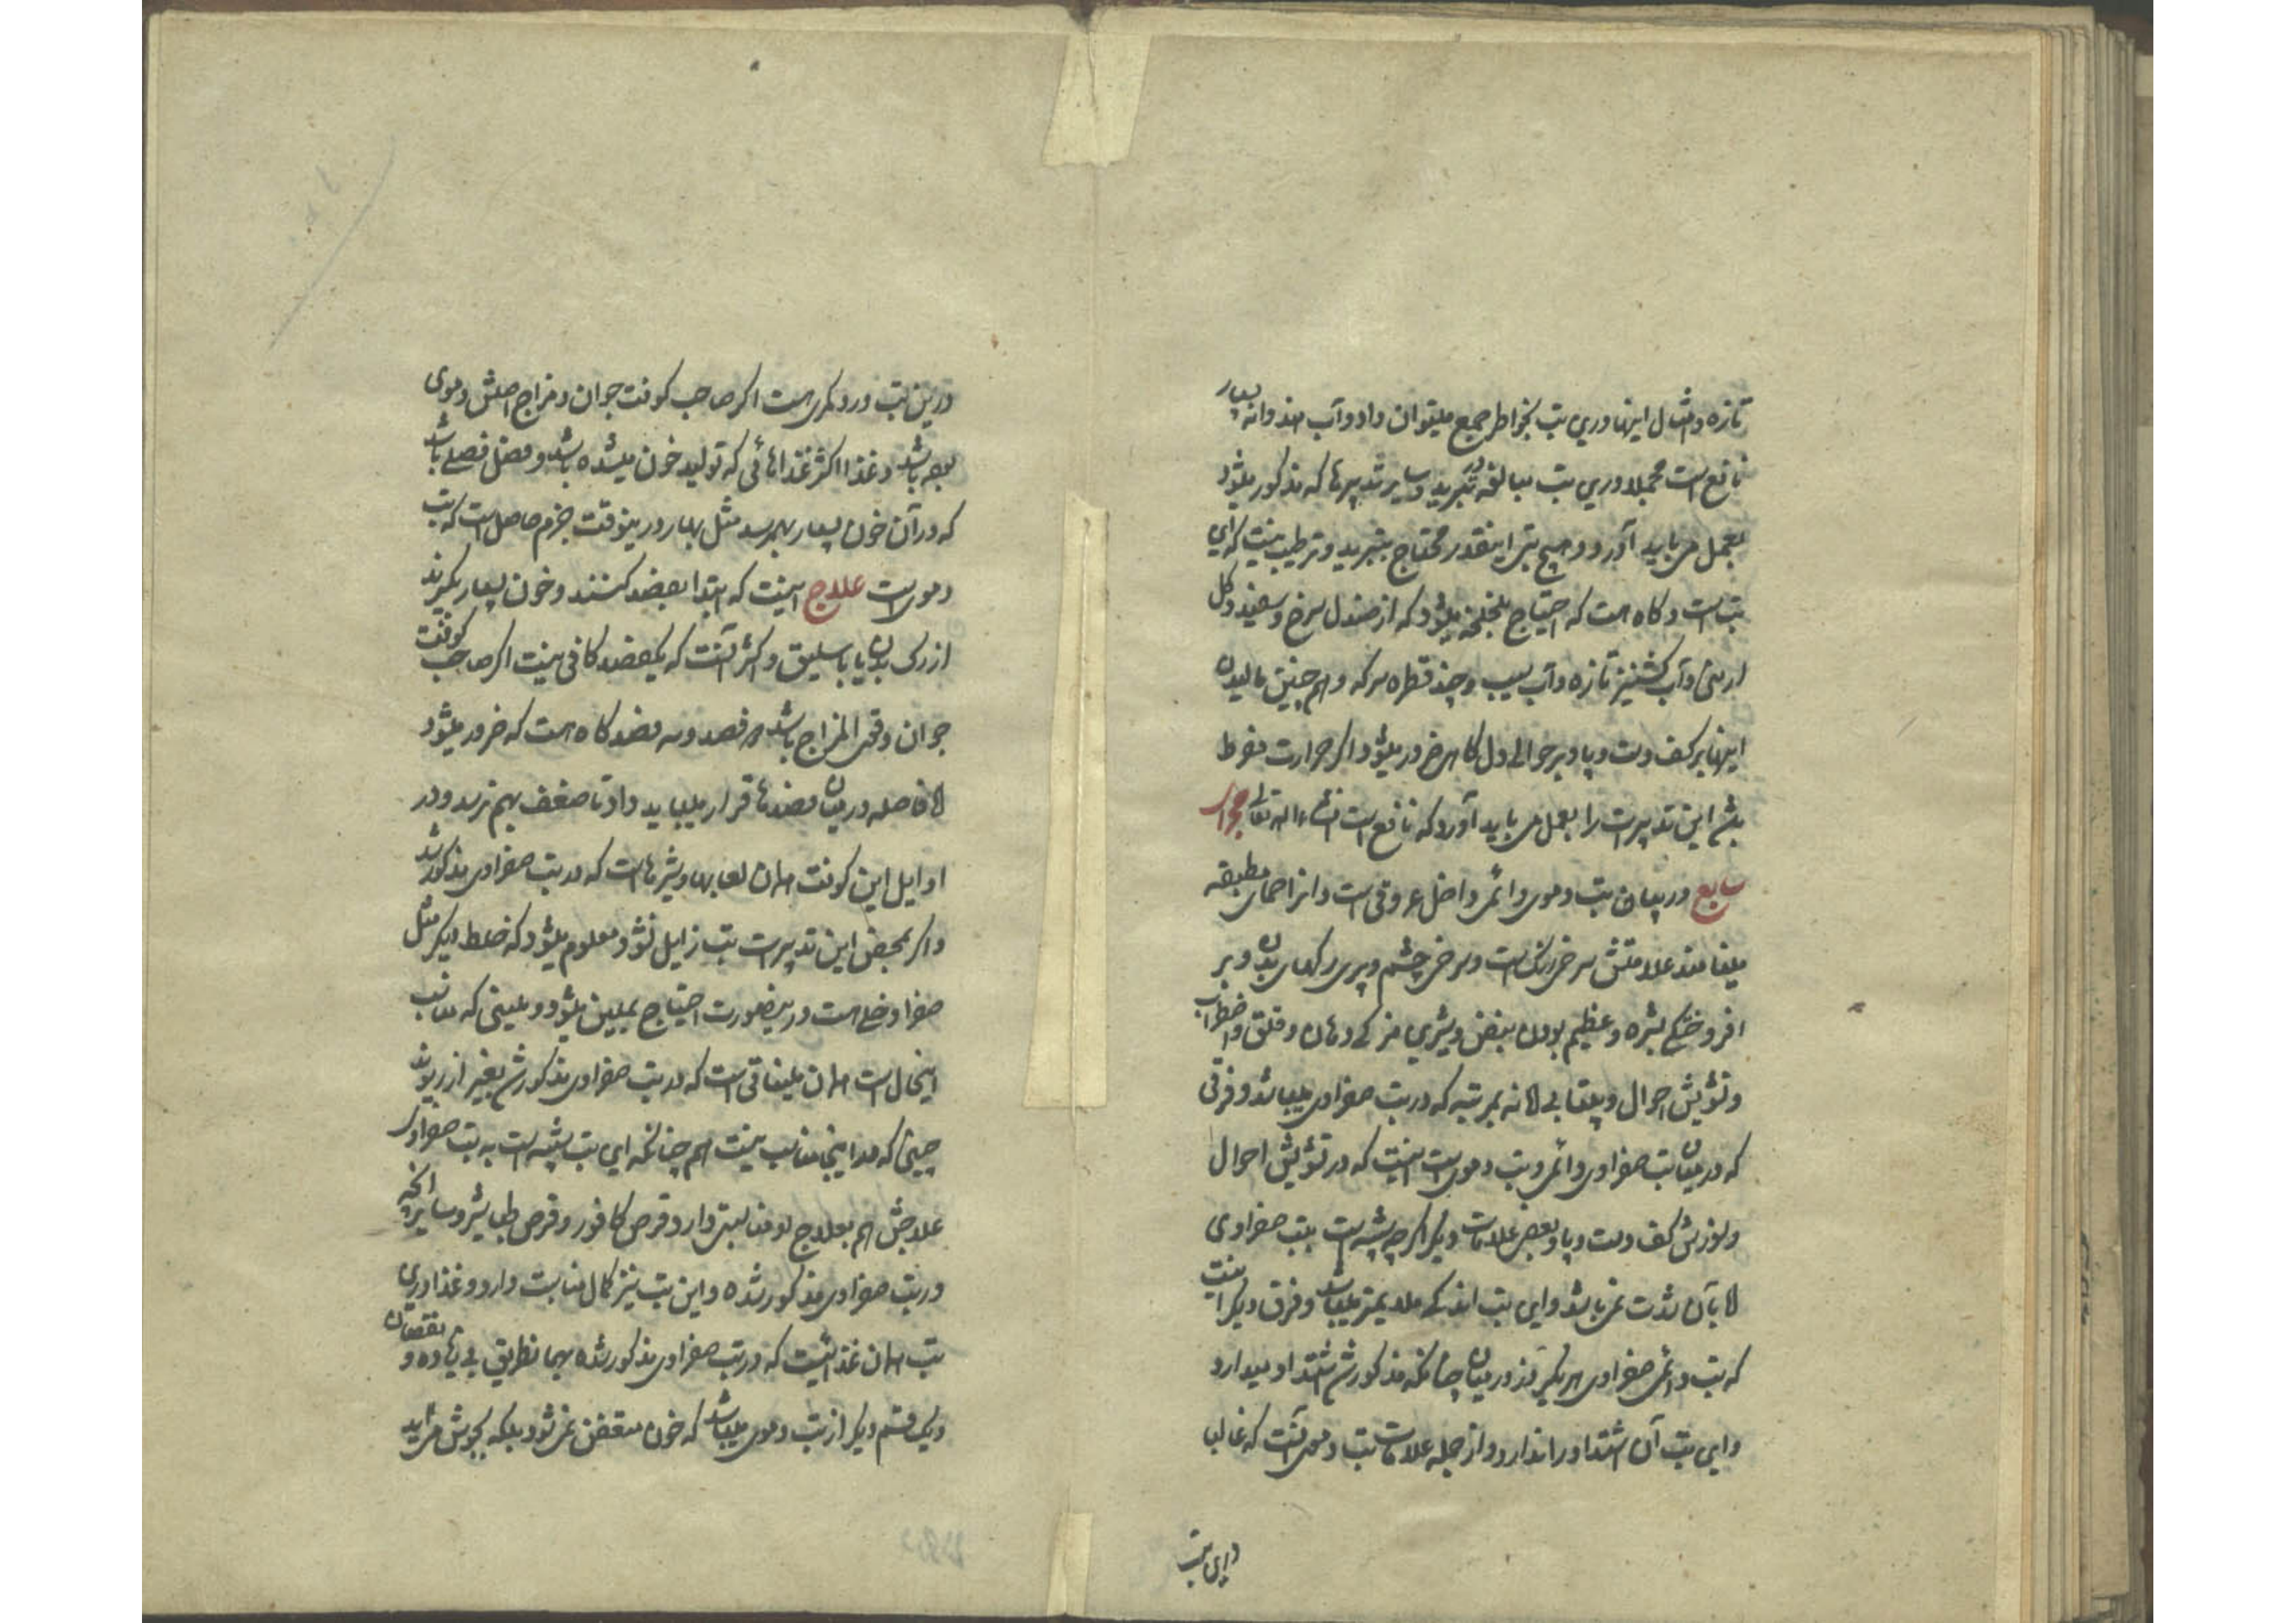 تازه و امثال اینها درین تب بخواطر جمع میتوان داد و آب هندوانه بسیار
نافع است مجملا درین تب مبالغه در تبرید و سایر تدبیرها که مذکور میشود
بعمل می باید آورد و هیچ تبی اینقدر محتاج بتبرید و ترطیب نیست که این
تب است و کاه هست که احتیاج بلخلخه میشود که از صندل سرخ و سفید و کل
ارمنی و آب کشنیز تازه و آب سیب و چند قطره سرکه و هم چنین مالیدن
اینها بر کف دست و پا و بر حوالی دل کاهی ضرور میشود و اکر حرارت مفرط
بشد این تدبیرات را بعمل می باید آورد که نافع است انشاء الله تعالی
سابع در بیان تب دموی دائمی داخل عروقی است و انرا حمای مطبقه
میخوانند علامتش سرخی رنک است و سرخی چشم و پری رکهای بدن و بر
افروختکی بشره و عظیم بودن نبض و شیرین مزکی دهان و قلق و اضطراب
و تشویش احوال و بیتابی لا نه بمرتبه که در تب صفراوی میباشد و فرقی
که در میان تب صفراوی دائمی و تب دمویست اینست که در تشویش احوال
و سوزش کف دست و پا و بعضی علامات دیکر اکرچه شبیه است بتب صفراوی
لا بآن شدت نمی باشد و این تب اندکی ملایمتر میباشد و فرق دیکر اینست
که تب دائمی صفراوی هر یکروز در میان چنانکه مذکور شد اشتداد میدارد
و این تب آن اشتداد را ندارد و از جمله علامات تب دموی آنست که غالبا
و این تب
درین تب درد کمری هست اکر صاحب کوفت جوان و مزاج اصلش دموی
بوده باشد و غذا اکثر غذاهائی که تولید خون میشده باشد و فصل فصلی باشد
که در آن خون بسیار بهمرسد مثل بهار درینوقت جزم حاصل است که تب
دموی است علاج اینست که ابتدا بفصد کنند و خون بسیار بکیرند
از رک بدن یا باسلیق و اکثر آنست که یکفصد کافی نیست اکر صاحب کوفت
جوان و قوی المزاج باشد دو فصد و سه فصد کاه هست که ضرور میشود
لا فاصله در میان فصدها قرار میباید داد تا ضعف بهم نرسد و در
اوایل این کوفت همان لعابها و شیرهاست که در تب صفراوی مذکور شد
و اکر بمحض این تدبیرات تب زایل نشود معلوم میشود که خلط دیکر مثل
صفرا دخلی هست درینصورت احتیاج بملین میشود و ملینی که مناسب
اینحال است همان ملیناتی است که در تب صفراوی مذکور شد بغیر از ریوند
چینی که در اینجا مناسب نیست هم چنانکه این تب شبیه است به تب صفراوی
علاجش هم بعلاج او مناسبتی دارد قرص کافور و قرص طباشیر و سایر آنچه
در تب صفراوی مذکور شده و این تب نیز کمال مناسبت دارد و غذا درین
تب همان غذائیست که در تب صفراوی مذکور شده بهمانطریق بی زیاده و نقصان
و یک قسم دیکر از تب دموی میباشد که خون متعفن نمی شود بلکه بجوش می آید